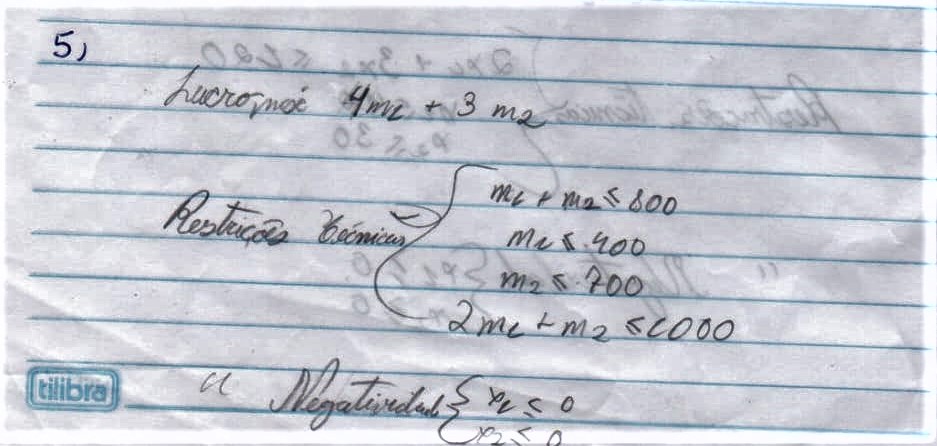 5)
Lucro máx 4m1 + 3 m2
Restrições técnicas
m1 + m2 ≤ 800
m1 ≤ 400
m2 ≤ 700
2m1 + m2 ≤ 1000
tilibra
" Negatividade { x1 ≤ 0
x2 ≤ 0